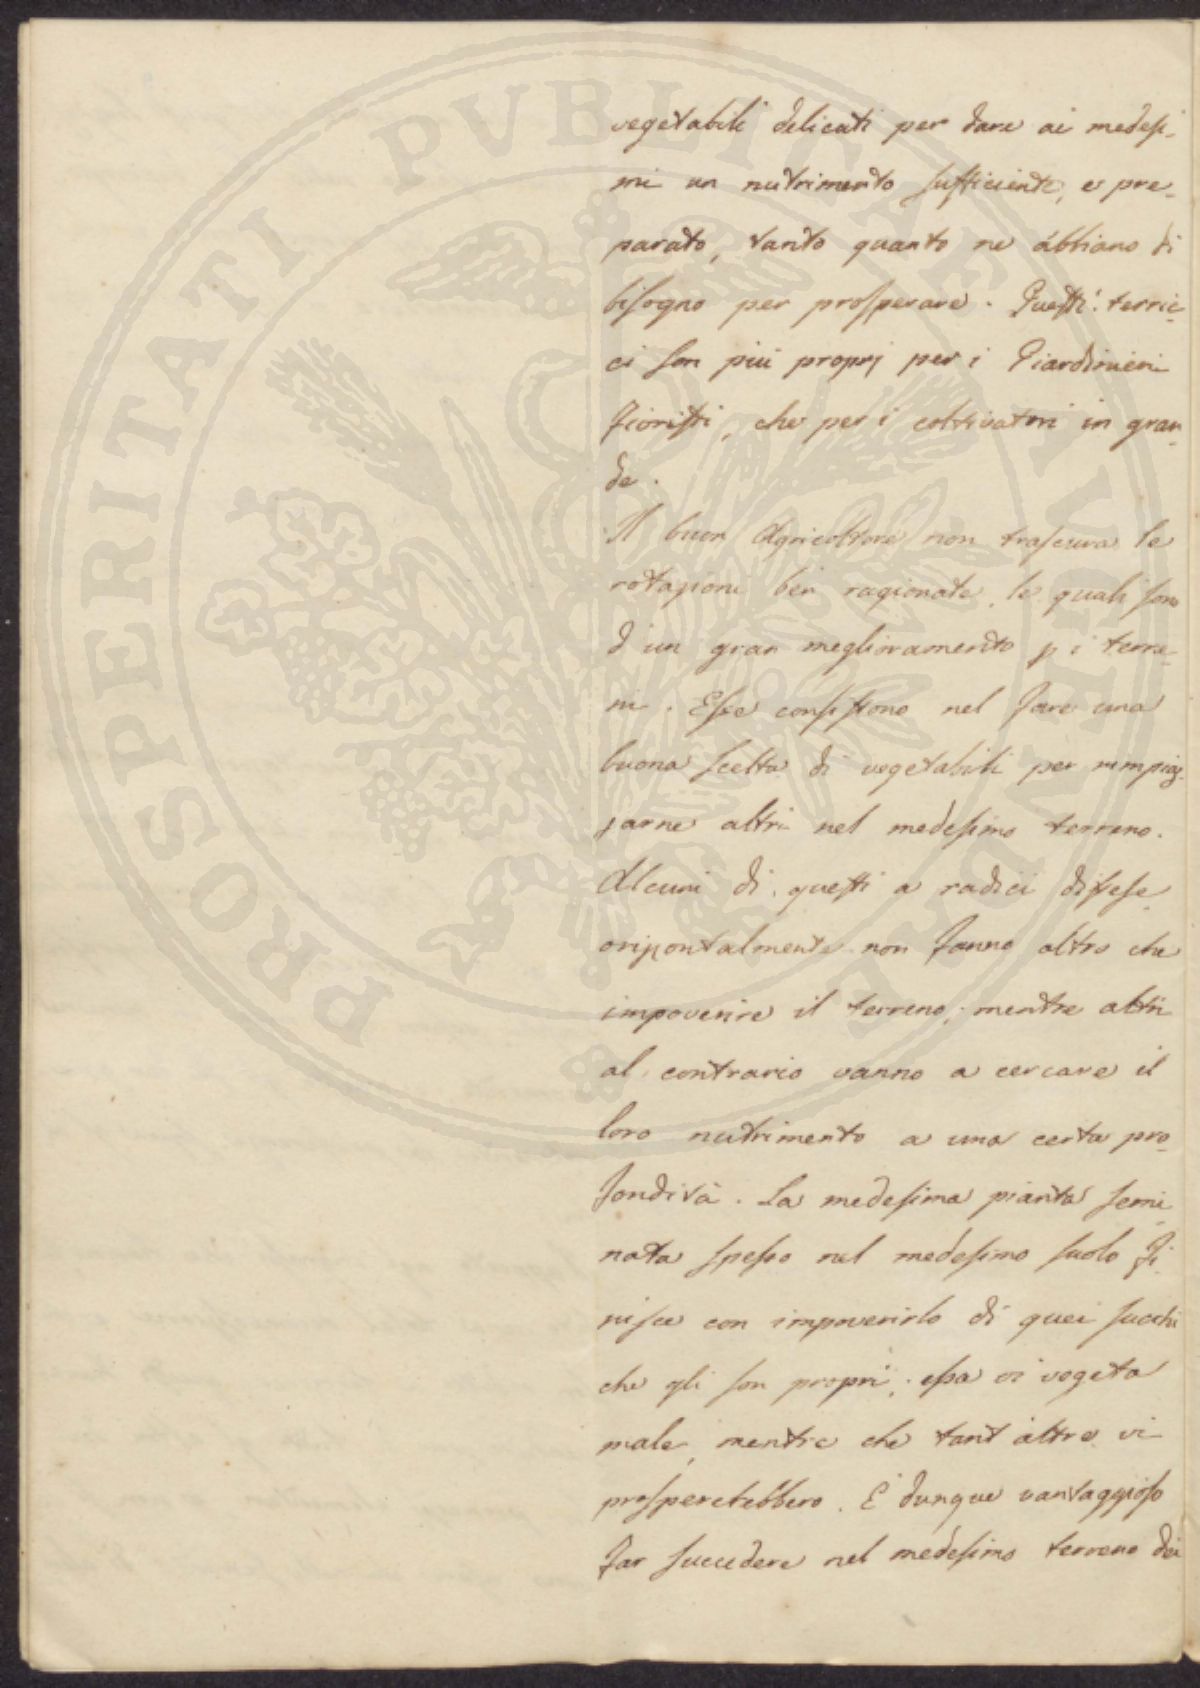 vegetabili delicati per dare ai medesi-
mi un nutrimento sufficiente, e pre-
parato, tanto quanto ne abbiano di
bisogno per prosperare. Questi terric-
ci son più proprj per i Giardinieri
fioristi, che per i coltivatori in gran-
de.
Il buon Agricoltore non trascura le
rotazioni ben ragionate, le quali sono
d'un gran miglioramento p i terre-
ni. Esse consistono nel fare una
buona scelta di vegetabili per rimpiaz-
zarne altri nel medesimo terreno.
Alcuni di questi a radici distese
orizontalmente non fanno altro che
impoverire il terreno, mentre altri
al contrario vanno a cercare il
loro nutrimento a una certa pro-
fondità. La medesima pianta semi-
nata spesso nel medesimo suolo fi-
nisce con impoverirlo di quei succhi
che gli son propri, essa vi vegeta
male, mentre che tant'altre vi
prospererebbero. E' dunque vantaggioso
far succedere nel medesimo terreno dei
PROSPERITATI PVBLICAE AVGENDAE